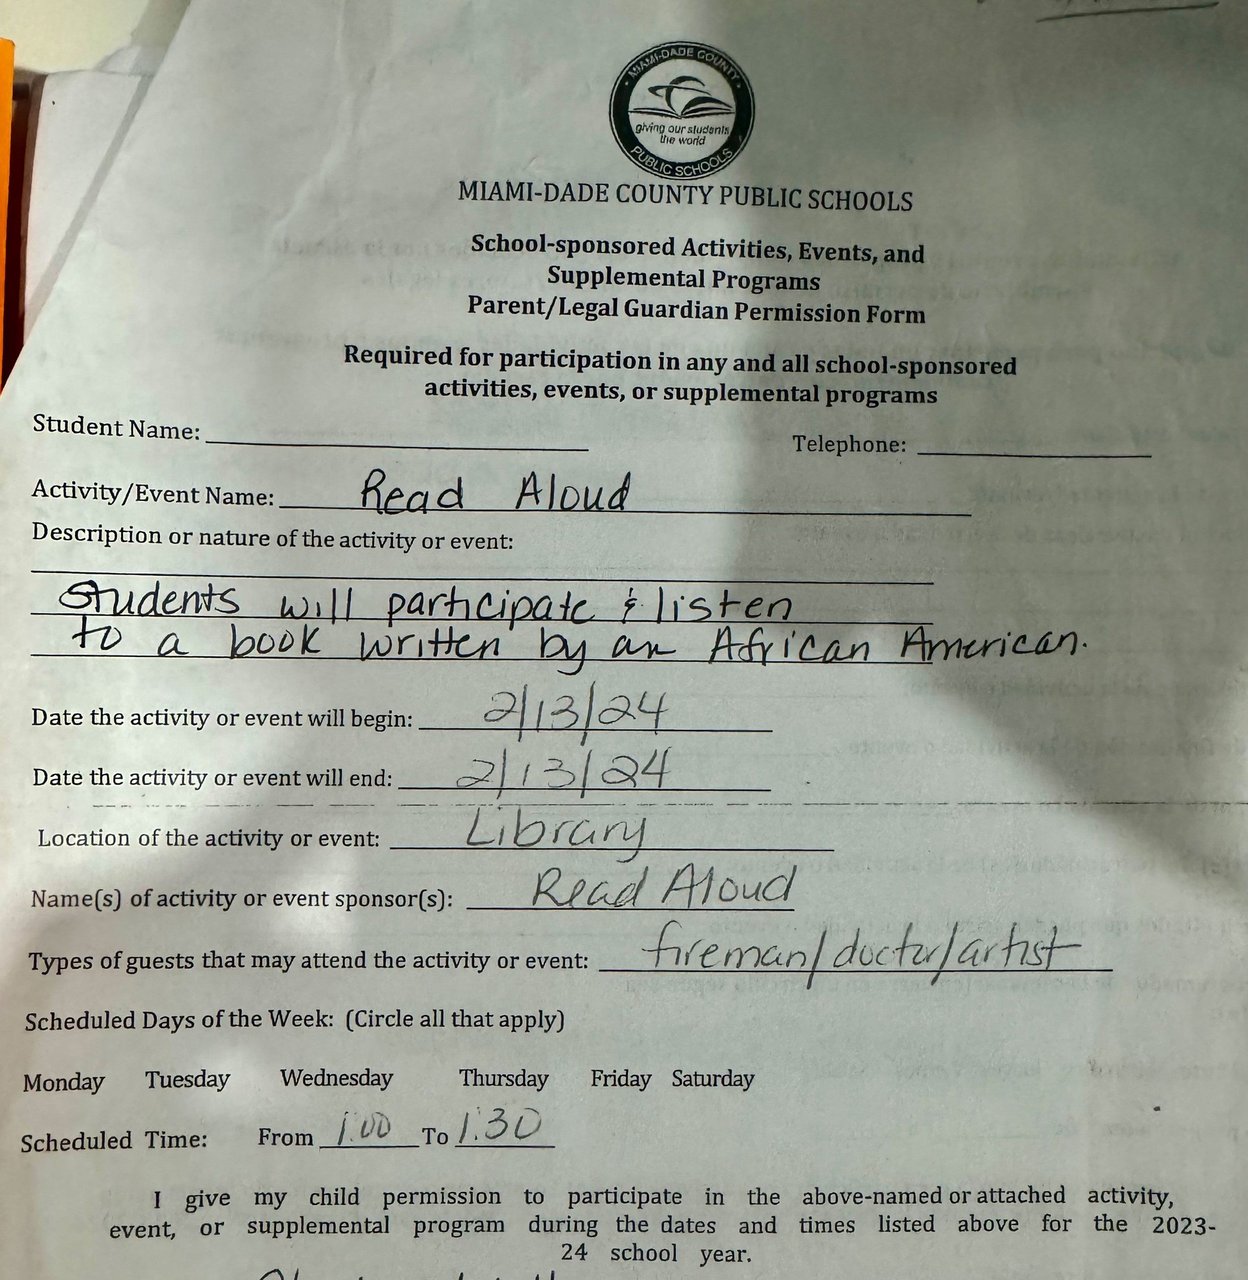 MIAMI-DADE COUNTY
giving our students
the world
PUBLIC SCHOOLS
MIAMI-DADE COUNTY PUBLIC SCHOOLS
School-sponsored Activities, Events, and
Supplemental Programs
Parent/Legal Guardian Permission Form
Required for participation in any and all school-sponsored
activities, events, or supplemental programs
Student Name: Telephone:
Activity/Event Name: Read Aloud
Description or nature of the activity or event:
Students will participate & listen
to a book written by an African American.
Date the activity or event will begin: 2/13/24
Date the activity or event will end: 2/13/24
Location of the activity or event: Library
Name(s) of activity or event sponsor(s): Read Aloud
Types of guests that may attend the activity or event: fireman/doctor/artist
Scheduled Days of the Week: (Circle all that apply)
Monday Tuesday Wednesday Thursday Friday Saturday
Scheduled Time: From 1:00 To 1:30
I give my child permission to participate in the above-named or attached activity,
event, or supplemental program during the dates and times listed above for the 2023-
24 school year.